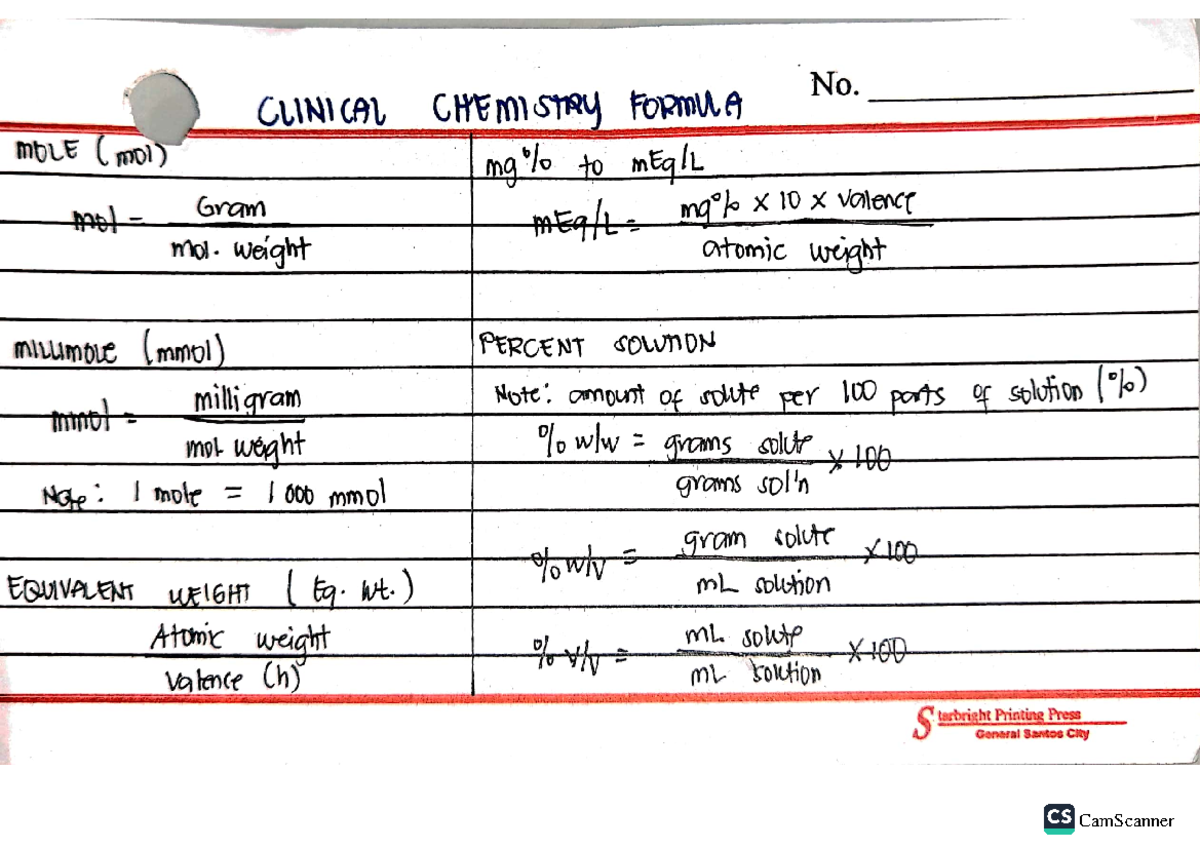 No.
CLINICAL CHEMISTRY FORMULA
MOLE (mol)
mol = Gram
mol. weight
MILLIMOLE (mmol)
mmol = milligram
mol. weight
Note: 1 mole = 1 000 mmol
EQUIVALENT WEIGHT (Eq. Wt.)
Atomic weight
valence (h)
mg% to mEq/L
mEq/L = mg% x 10 x valence
atomic weight
PERCENT SOLUTION
Note: amount of solute per 100 parts of solution (%)
% w/w = grams solute x 100
grams sol'n
% w/v = gram solute x 100
mL solution
% v/v = mL solute x 100
mL solution
Starbright Printing Press
General Santos City
CS CamScanner